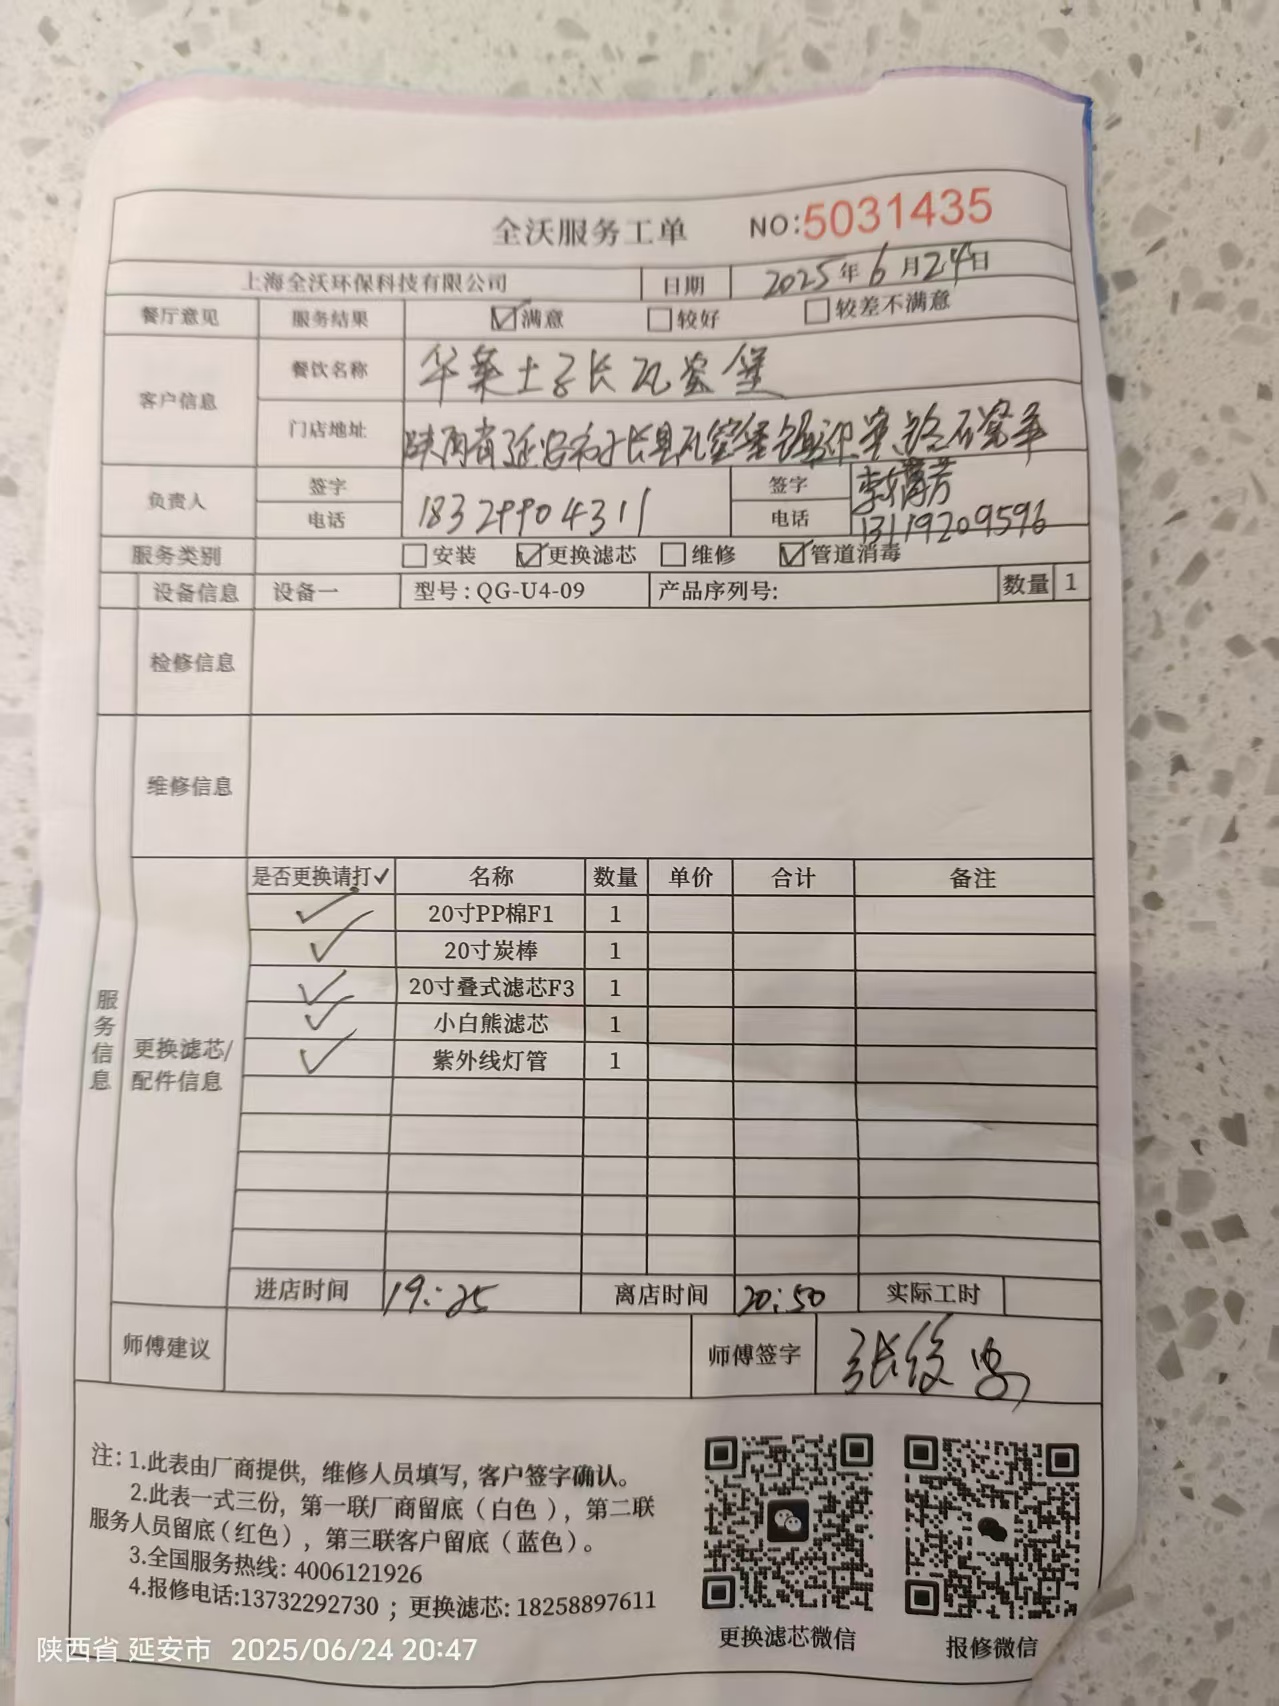 全沃服务工单 NO:5031435
上海全沃环保科技有限公司 日期 2025年6月24日
餐厅意见 服务结果 ☑满意 □较好 □较差不满意
客户信息 餐饮名称 华莱士子长瓦窑堡
门店地址 陕西省延安市子长县瓦窑堡镇迎宾路石窑
负责人 签字 签字 李
电话 18329904311 电话 13119209596
服务类别 □安装 ☑更换滤芯 □维修 ☑管道消毒
设备信息 设备一 型号:QG-U4-09 产品序列号: 数量 1
检修信息
维修信息
服务信息
更换滤芯/配件信息
是否更换请打✓ 名称 数量 单价 合计 备注
✓ 20寸PP棉F1 1
✓ 20寸炭棒 1
✓ 20寸叠式滤芯F3 1
✓ 小白熊滤芯 1
✓ 紫外线灯管 1
进店时间 19:25 离店时间 20:50 实际工时
师傅建议 师傅签字 张
注:1.此表由厂商提供,维修人员填写,客户签字确认。
2.此表一式三份,第一联厂商留底(白色),第二联
服务人员留底(红色),第三联客户留底(蓝色)。
3.全国服务热线:4006121926
4.报修电话:13732292730;更换滤芯:18258897611
更换滤芯微信 报修微信
陕西省 延安市 2025/06/24 20:47